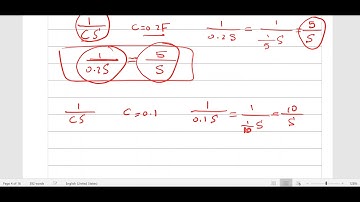 1/CS C=0.2F 1/0.2S = 1/(1/5 S) = 5/S
1/0.2S = 5/S
1/CS C=0.1 1/0.1S = 1/(1/10 S) = 10/S
Page 4 of 16 392 words English (United States)